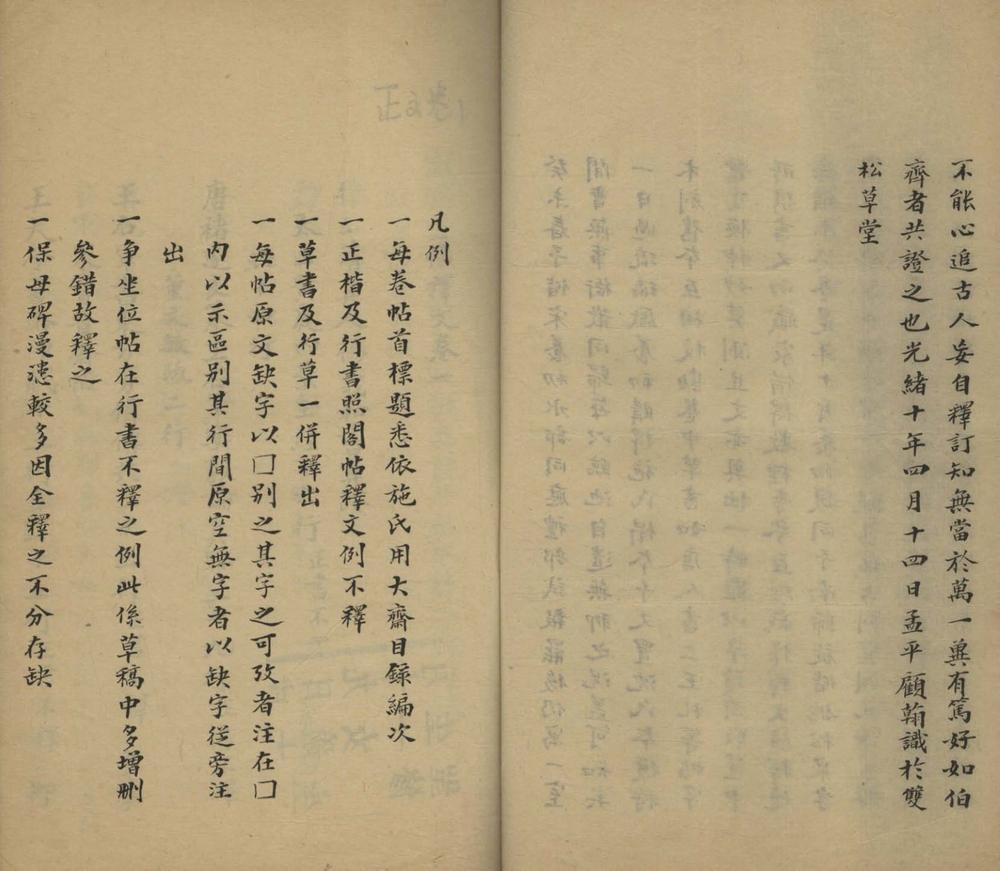 不能心追古人妄自釋訂知無當於萬一冀有篤好如伯
齊者共證之也光緒十年四月十四日孟平顧翰識於雙
松草堂
凡例
一每卷帖首標題悉依施氏用大齋目録編次
一正楷及行書照閣帖釋文例不釋
一草書及行草一併釋出
一每帖原文缺字以囗别之其字之可攷者注在囗
内以示區别其行間原空無字者以缺字從旁注
出
一争坐位帖在行書不釋之例此係草稿中多增刪
參錯故釋之
一保母碑漫漶較多因全釋之不分存缺